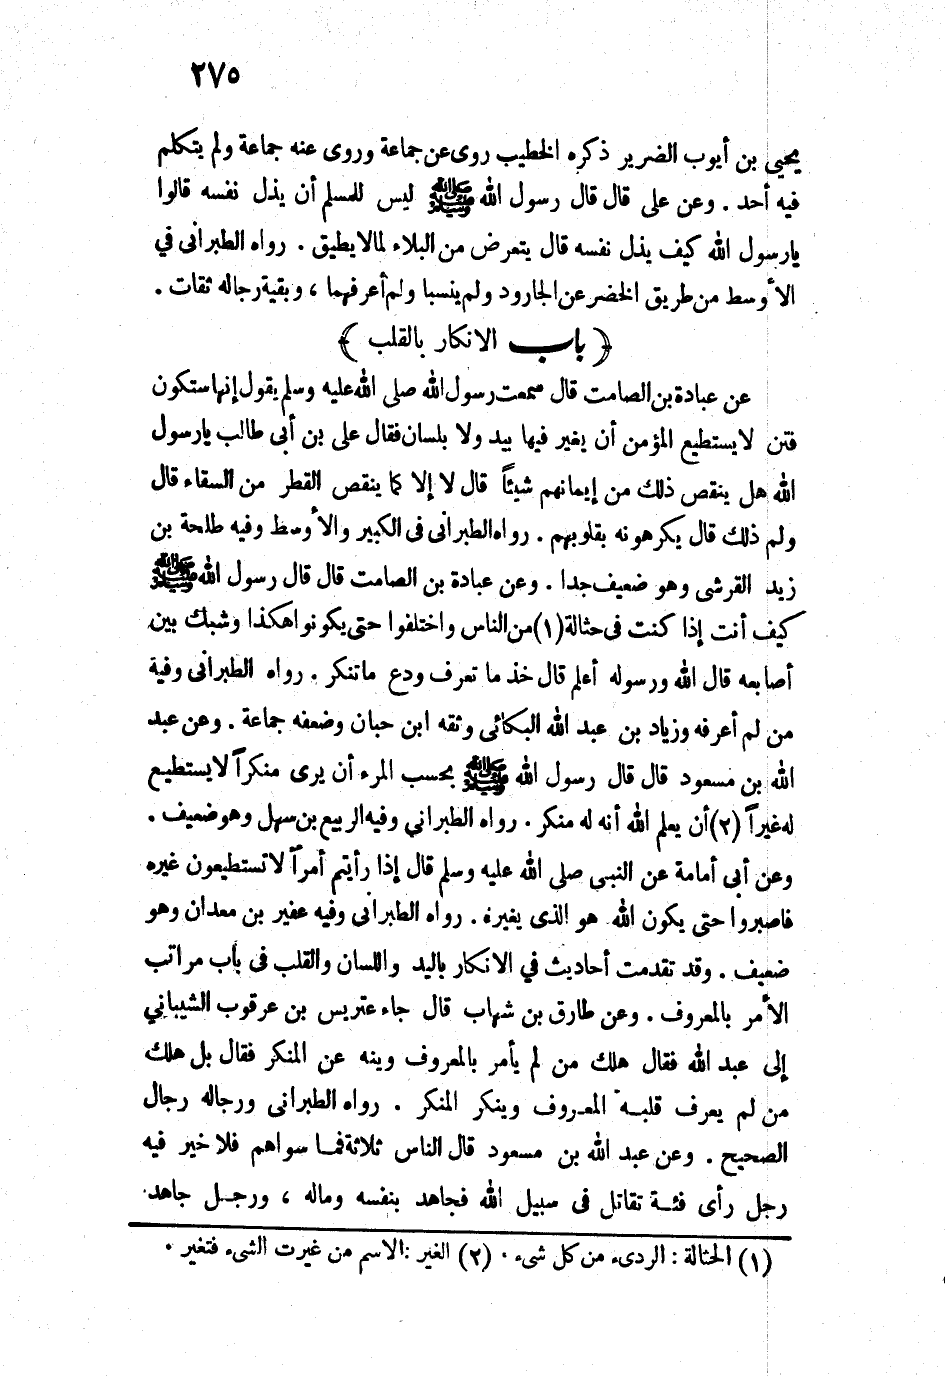 ٢٧٥
يحيى بن أيوب الضرير ذكره الخطيب روى عن جماعة وروى عنه جماعة ولم يتكلم
فيه أحد . وعن على قال قال رسول الله ﷺ ليس للمسلم أن يذل نفسه قالوا
يارسول الله كيف يذل نفسه قال يتعرض من البلاء لمالايطيق . رواه الطبرانى في
الأوسط من طريق الخضر عن الجارود ولم ينسبا ولم أعرفهما ، وبقية رجاله ثقات .
﴿ باب الانكار بالقلب ﴾
عن عبادة بن الصامت قال سمعت رسول الله صلى الله عليه وسلم يقول إنها ستكون
فتن لا يستطيع المؤمن أن يغير فيها بيد ولا بلسان فقال على بن أبي طالب يارسول
الله هل ينقص ذلك من إيمانهم شيئاً قال لا إلا كما ينقص القطر من السقاء قال
ولم ذلك قال يكرهونه بقلوبهم . رواه الطبرانى فى الكبير والأوسط وفيه طلحة بن
زيد القرشى وهو ضعيف جدا . وعن عبادة بن الصامت قال قال رسول الله ﷺ
كيف أنت إذا كنت فى حثالة (١) من الناس واختلفوا حتى يكونوا هكذا وشبك بين
أصابعه قال الله ورسوله أعلم قال خذ ما تعرف ودع ماتنكر . رواه الطبرانى وفية
من لم أعرفه وزياد بن عبد الله البكائى وثقه ابن حبان وضعفه جماعة . وعن عبد
الله بن مسعود قال قال رسول الله ﷺ بحسب المرء أن يرى منكراً لا يستطيع
له غيراً (٢) أن يعلم الله أنه له منكر . رواه الطبراني وفيه الربيع بن سهل وهو ضعيف .
وعن أبى أمامة عن النبى صلى الله عليه وسلم قال إذا رأيتم أمراً لاتستطيعون غيره
فاصبروا حتى يكون الله هو الذى يغيره . رواه الطبرانى وفيه عفير بن معدان وهو
ضعيف . وقد تقدمت أحاديث في الانكار باليد واللسان والقلب فى باب مراتب
الأمر بالمعروف . وعن طارق بن شهاب قال جاء عتريس بن عرقوب الشيباني
إلى عبد الله فقال هلك من لم يأمر بالمعروف وينه عن المنكر فقال بل هلك
من لم يعرف قلبه المعروف وينكر المنكر . رواه الطبرانى ورجاله رجال
الصحيح . وعن عبد الله بن مسعود قال الناس ثلاثة فما سواهم فلا خير فيه
رجل رأى فئة تقاتل فى سبيل الله فجاهد بنفسه وماله ، ورجل جاهد
(١) الحثالة : الردىء من كل شىء . (٢) الغير : الاسم من غيرت الشىء فتغير .